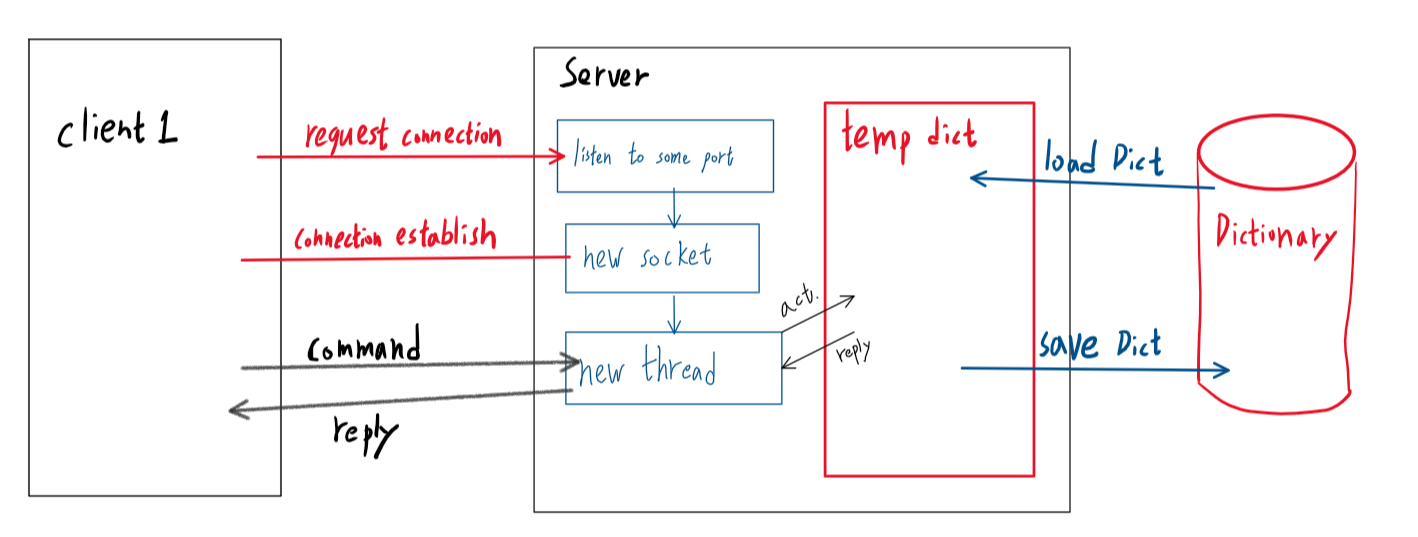 client 1
request connection
connection establish
Command
reply
Server
listen to some port
new socket
new thread
act.
reply
temp dict
load Dict
save Dict
Dictionary